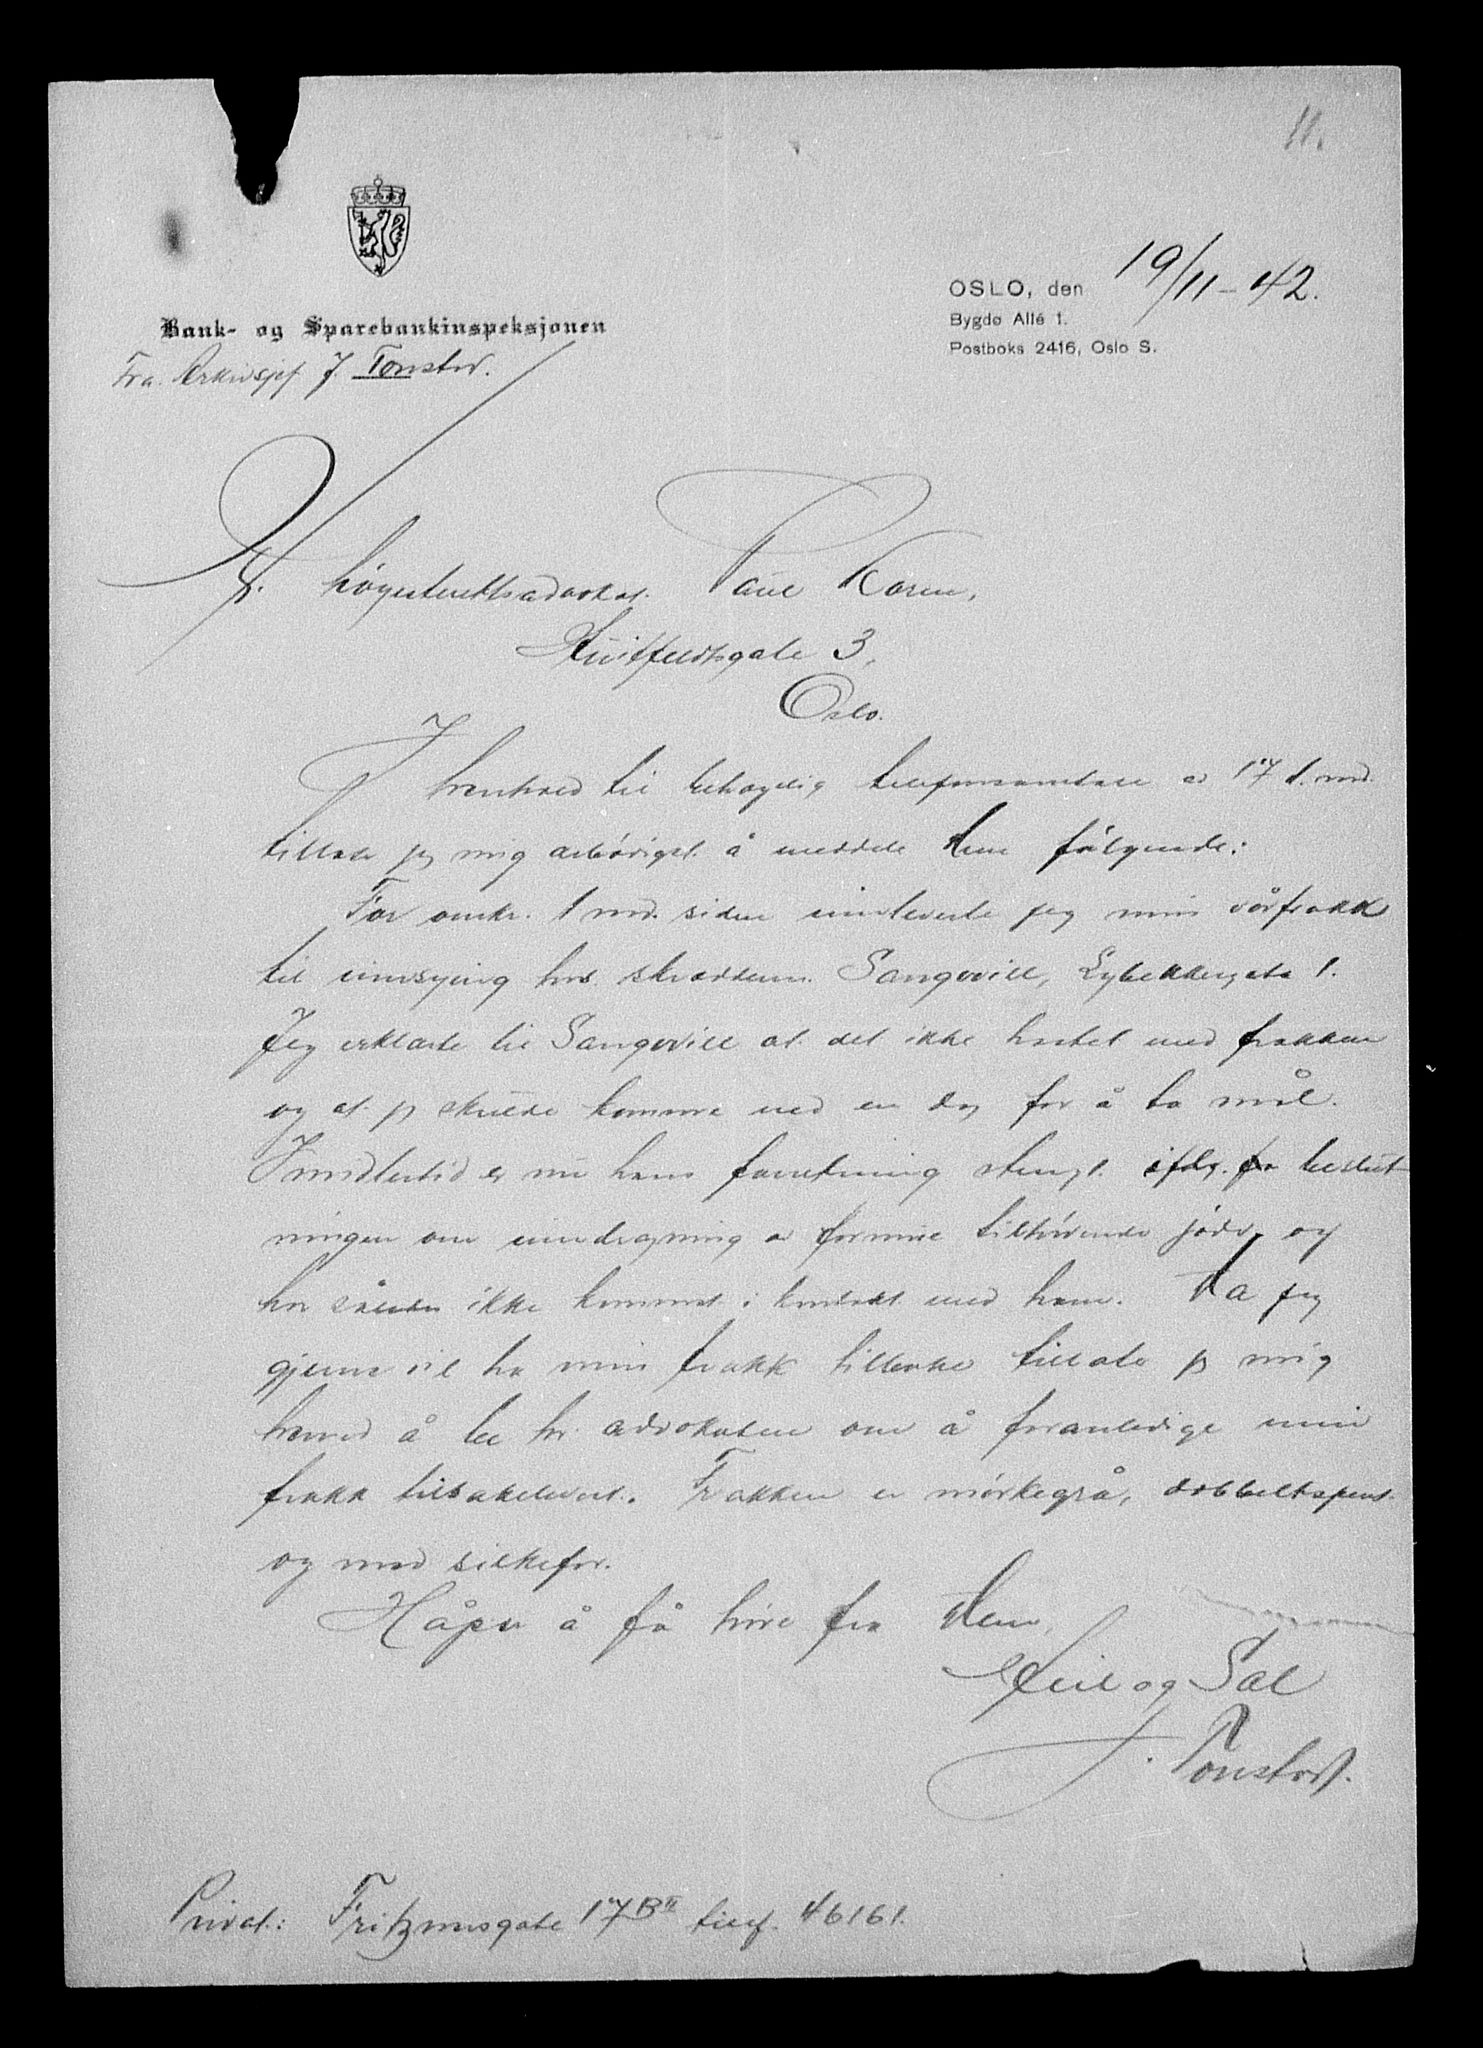 11.
OSLO, den 19/11-42.
Bygdø Allé 1.
Postboks 2416, Oslo S.
Bank- og Sparebankinspeksjonen
Fra Arkivsjef J. Tonstad.
Hr. høyesterettsadvokat Paul Koren,
Huitfeldtsgate 3,
Oslo.
I henhold til behagelig telefonsamtale av 17 d. md.
tillater jeg mig ærbødigst å meddele Dem følgende:
For omkr. 1 md. siden innleverte jeg min vårfrakk
til innsying hos skredderm. Sangwill, Lybekkergata 1.
Jeg erklærte til Sangwill at det ikke hastet med frakken
og at jeg skulde komme ned en dag for å ta mål.
Imidlertid er nu hans forretning stengt ifølg. beslut-
ningen om inndragning av formue tilhørende jøder og
har således ikke kommet i kontakt med ham. Da jeg
gjerne vil ha min frakk tilbake tillater jeg mig
herved å be hr. advokaten om å foranledige min
frakk tilbakelevert. Frakken er mørkegrå, dobbeltspent
og med silkefor.
Håper å få høre fra Dem,
Heil og Sæl
J. Tonstad.
Privat: Fritznersgate 17 B II telef. 46161.